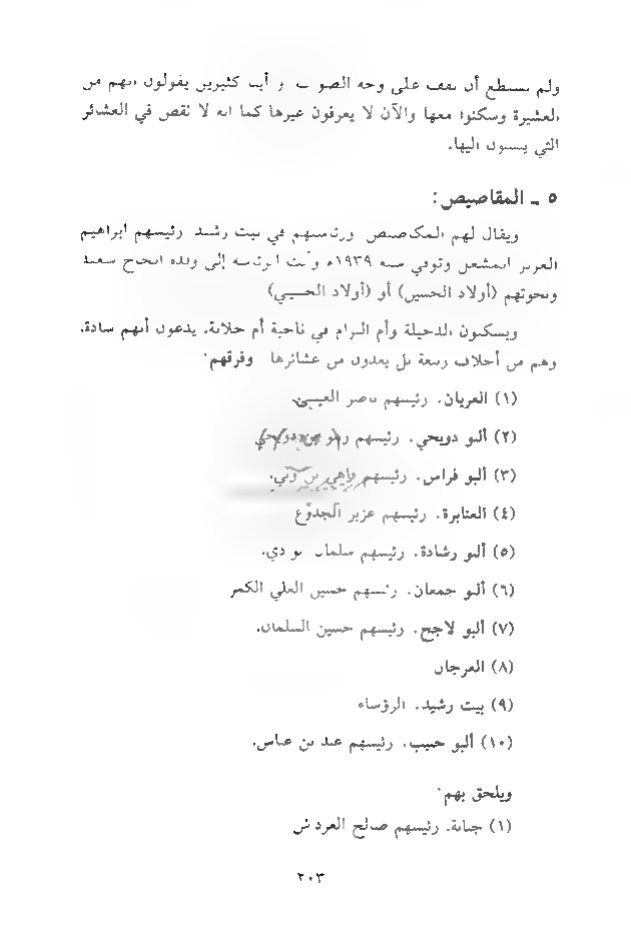 ولم نستطع أن نقف على وجه الصواب و كثيرين يقولون انهم من
العشيرة وسكنوا معها والآن لا يعرفون غيرها كما انه لا نقص في العشائر
التي ينتمون اليها.
٥ ـ المقاصيص:
ويقال لهم المكاصيص ورئاستهم في بيت رشيد رئيسهم ابراهيم
العزيز المشعل وتوفي سنة ١٩٣٩م الرئاسة إلى ولده الحاج سعيد
ونخوتهم (أولاد الحسين) أو (أولاد الحسيني)
ويسكنون الدحيلة وأم البرام في ناحية أم حلانة. يدعون أنهم سادة.
وهم من أحلاف ربيعة بل يعدون من عشائرها وفرقهم:
(١) العريان. رئيسهم ناصر
(٢) ألبو دويحي. رئيسهم بن دويحي
(٣) ألبو فراس. رئيسهم بن
(٤) العنابرة. رئيسهم عزيز الجدوّع
(٥) ألبو رشادة. رئيسهم سلمان
(٦) ألبو جمعان. رئيسهم حسين العلي
(٧) ألبو لاجح. رئيسهم حسين السلمان.
(٨) العرجان
(٩) بيت رشيد. الرؤساء
(١٠) ألبو حبيب. رئيسهم عبد بن عباس.
ويلحق بهم:
(١) جنانة. رئيسهم صالح
٢٠٣